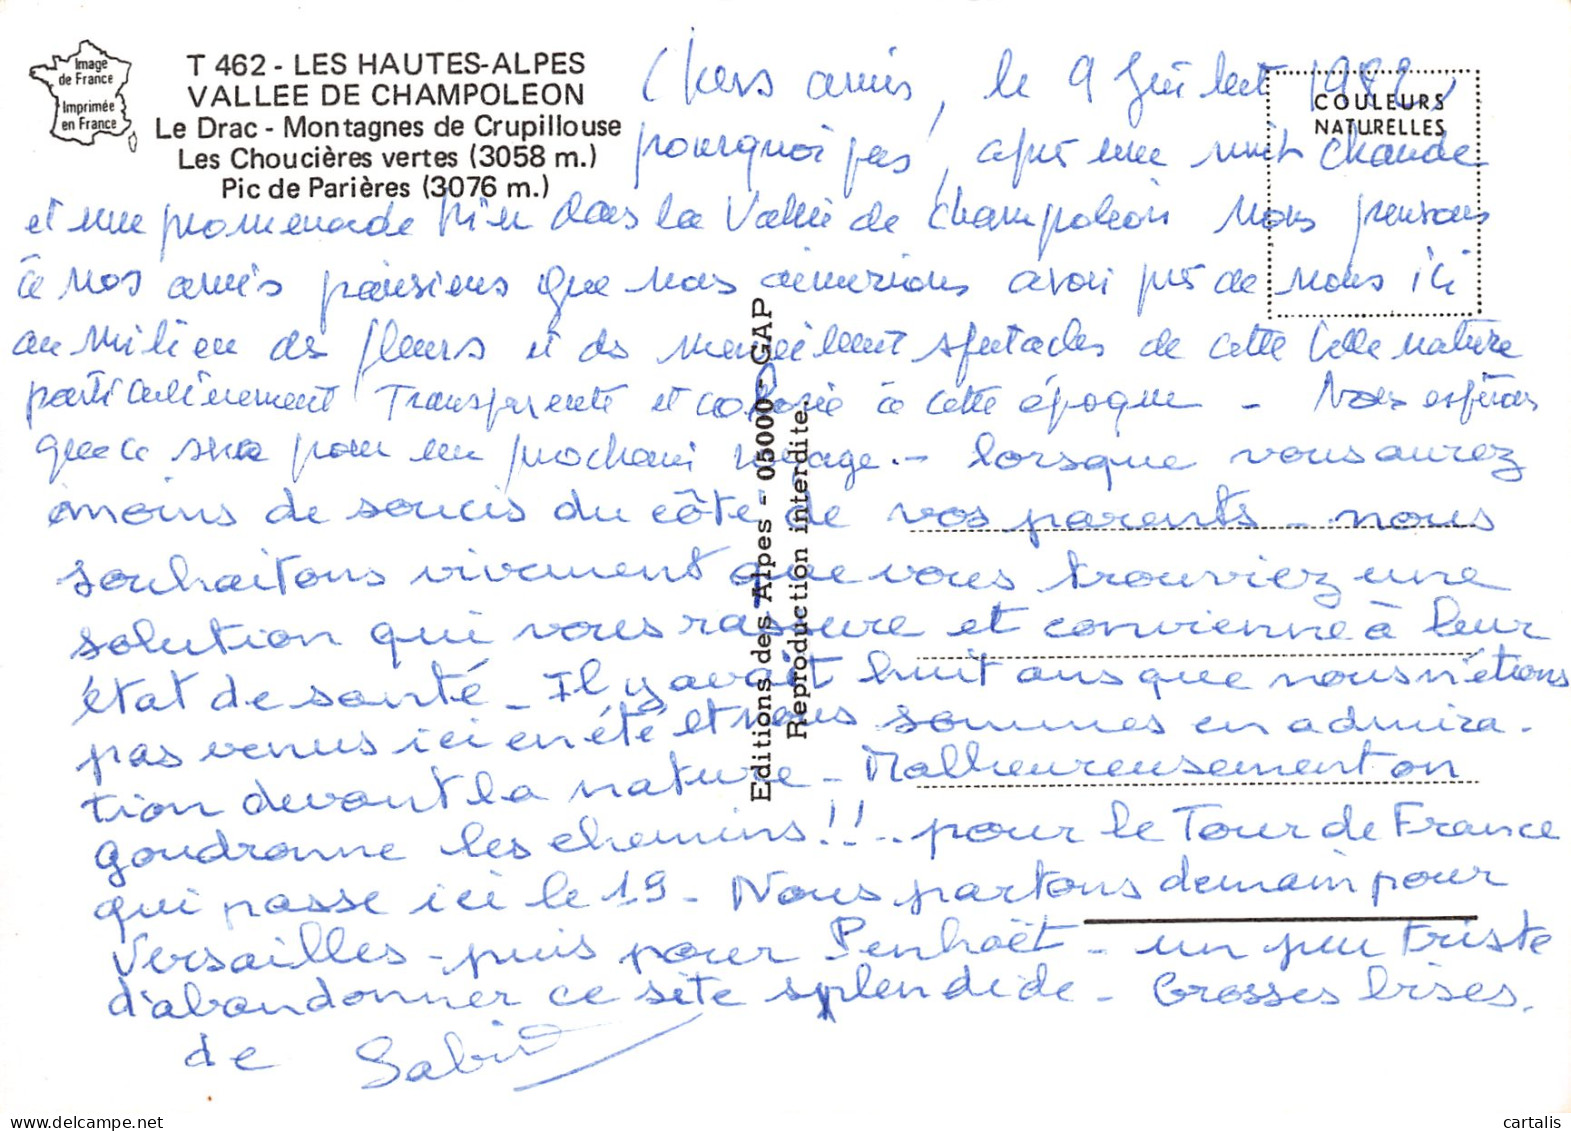 Image
de France
Imprimée
en France
T 462 - LES HAUTES-ALPES
VALLEE DE CHAMPOLEON
Le Drac - Montagnes de Crupillouse
Les Choucières vertes (3058 m.)
Pic de Parières (3076 m.)
COULEURS
NATURELLES
Editions des Alpes - 05000 - GAP
Reproduction interdite.
Chers amis, le 9 Juillet 1982,
pourquoi pas, après une nuit chaude
et une promenade hier dans la Vallée de Champoléon nous pensons
à nos amis parisiens que nous aimerions avoir près de nous ici
au milieu des fleurs et des merveilleux spectacles de cette belle nature
particulièrement transparente et colorée à cette époque - Nous espérons
que ce sera pour un prochain voyage. - lorsque vous aurez
moins de soucis du côté de vos parents - nous
souhaitons vivement que vous trouviez une
solution qui vous rassure et convienne à leur
état de santé - Il y avait huit ans que nous n'étions
pas venus ici en été et nous sommes en admira-
tion devant la nature - Malheureusement on
goudronne les chemins!!.. pour le Tour de France
qui passe ici le 19 - Nous partons demain pour
Versailles - puis pour Penhoët - un peu triste
d'abandonner ce site splendide - Grosses bises.
de
cartalis